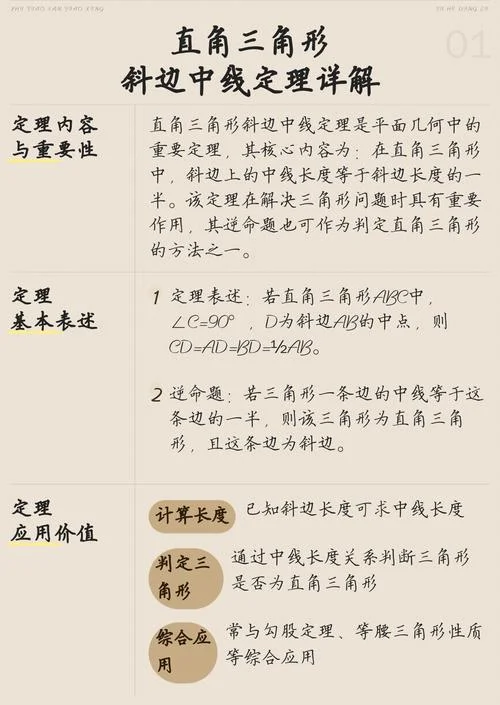 ZHI JIAO SAN JIAO XING
01
直角三角形
斜边中线定理详解
定理内容
与重要性
直角三角形斜边中线定理是平面几何中的
重要定理，其核心内容为：在直角三角形
中，斜边上的中线长度等于斜边长度的一
半。该定理在解决三角形问题时具有重要
作用，其逆命题也可作为判定直角三角形
的方法之一。
定理
基本表述
1 定理表述：若直角三角形ABC中，
∠C=90°，D为斜边AB的中点，则
CD=AD=BD=½AB。
2 逆命题：若三角形一条边的中线等于这
条边的一半，则该三角形为直角三角
形，且这条边为斜边。
定理
应用价值
计算长度 已知斜边长度可求中线长度
判定三
角形
通过中线长度关系判断三角形
是否为直角三角形
综合应
用
常与勾股定理、等腰三角形性质
等综合应用